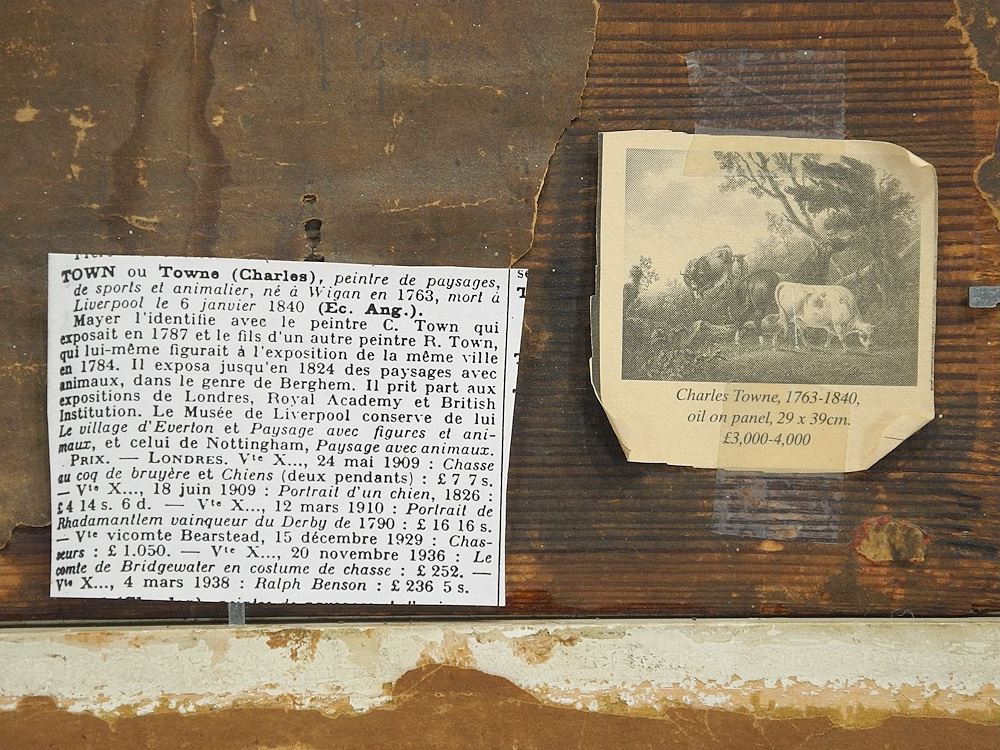 TOWN ou Towne (Charles), peintre de paysages,
de sports et animalier, né à Wigan en 1763, mort à
Liverpool le 6 janvier 1840 (Ec. Ang.).
Mayer l'identifie avec le peintre C. Town qui
exposait en 1787 et le fils d'un autre peintre R. Town,
qui lui-même figurait à l'exposition de la même ville
en 1784. Il exposa jusqu'en 1824 des paysages avec
animaux, dans le genre de Berghem. Il prit part aux
expositions de Londres, Royal Academy et British
Institution. Le Musée de Liverpool conserve de lui
Le village d'Everton et Paysage avec figures et ani-
maux, et celui de Nottingham, Paysage avec animaux.
PRIX. — LONDRES. Vte X..., 24 mai 1909 : Chasse
au coq de bruyère et Chiens (deux pendants) : £ 7 7 s.
— Vte X..., 18 juin 1909 : Portrait d'un chien, 1826 :
£ 4 14 s. 6 d. — Vte X..., 12 mars 1910 : Portrait de
Rhadamantlem vainqueur du Derby de 1790 : £ 16 16 s.
— Vte vicomte Bearstead, 15 décembre 1929 : Chas-
seurs : £ 1.050. — Vte X..., 20 novembre 1936 : Le
comte de Bridgewater en costume de chasse : £ 252. —
Vte X..., 4 mars 1938 : Ralph Benson : £ 236 5 s.
Charles Towne, 1763-1840,
oil on panel, 29 x 39cm.
£3,000-4,000